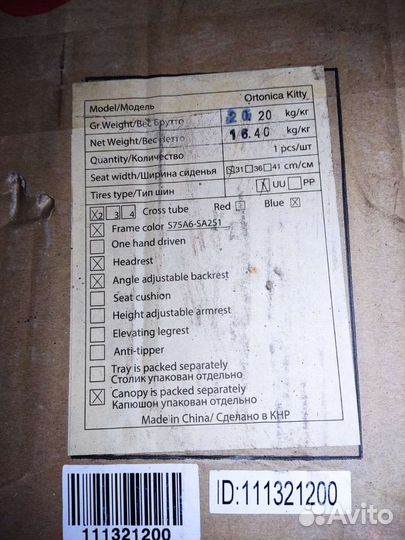 Model/Модель Ortonica Kitty
Gr.Weight/Вес брутто 20.20 kg/кг
Net Weight/Вес нетто 16.40 kg/кг
Quantity/Количество 1 pcs/шт
Seat width/Ширина сиденья 31 36 41 cm/см
Tires type/Тип шин UU PP
2 3 4 Cross tube Red Blue
Frame color S75A6-SA251
One hand driven
Headrest
Angle adjustable backrest
Seat cushion
Height adjustable armrest
Elevating legrest
Anti-tipper
Tray is packed separately
Столик упакован отдельно
Canopy is packed separately
Капюшон упакован отдельно
Made in China/ Сделано в КНР
111321200
ID:111321200
Avito